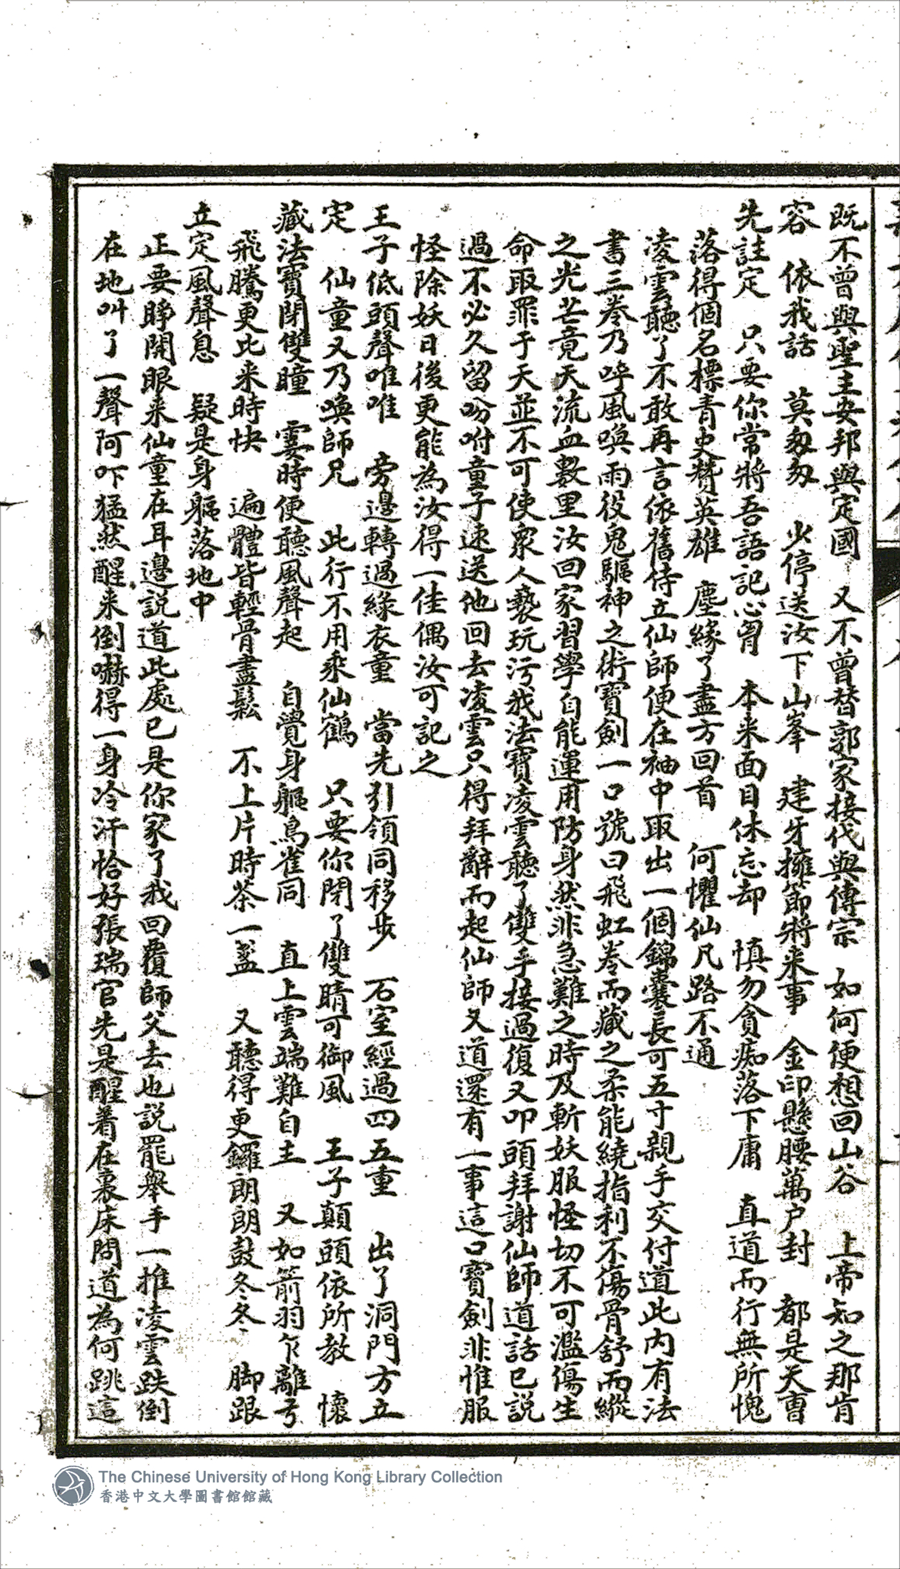 既不曾與聖主安邦與定國　又不曾替郭家接代與傳宗　如何便想回山谷　上帝知之那肯
容　依我話　莫匆匆　少停送汝下山峯　建牙擁節將來事　金印懸腰萬户封　都是天曹
先註定　只要你常將吾語記心胷　本來面目休忘却　慎勿貪痴落下庸　直道而行無所愧
落得個名標青史贊英雄　塵緣了盡方回首　何懼仙凡路不通
凌雲聽了不敢再言依舊侍立仙師便在袖中取出一個錦囊長可五寸親手交付道此内有法
書三卷乃呼風喚雨役鬼驅神之術寶劍一口號曰飛虹卷而藏之柔能繞指利不傷骨舒而縱
之光芒竟天流血數里汝回家習學自能運用防身然非急難之時及斬妖服怪切不可濫傷生
命取罪于天並不可使衆人褻玩污我法寶凌雲聽了雙手接過復又叩頭拜謝仙師道話已説
過不必久留吩咐童子速送他回去凌雲只得拜辭而起仙師又道還有一事這口寶劍非惟服
怪除妖日後更能為汝得一佳偶汝可記之
王子低頭聲唯唯　旁邊轉過綠衣童　當先引領同移步　石室經過四五重　出了洞門方立
定　仙童又乃喚師兄　此行不用乘仙鶴　只要你閉了雙睛可御風　王子顛頭依所教　懷
藏法寶閉雙瞳　霎時便聽風聲起　自覺身軀鳥雀同　直上雲端難自主　又如箭羽乍離弓
飛騰更比来時快　遍體皆輕骨盡鬆　不上片時茶一盞　又聽得更鑼朗朗鼓冬冬　脚跟
立定風聲息　疑是身軀落地中
正要睜開眼来仙童在耳邊説道此處已是你家了我回覆師父去也説罷舉手一推凌雲跌倒
在地叫了一聲阿吓猛然醒来倒嚇得一身冷汗恰好張瑞官先是醒着在裏床問道為何跳這
The Chinese University of Hong Kong Library Collection
香港中文大學圖書館館藏